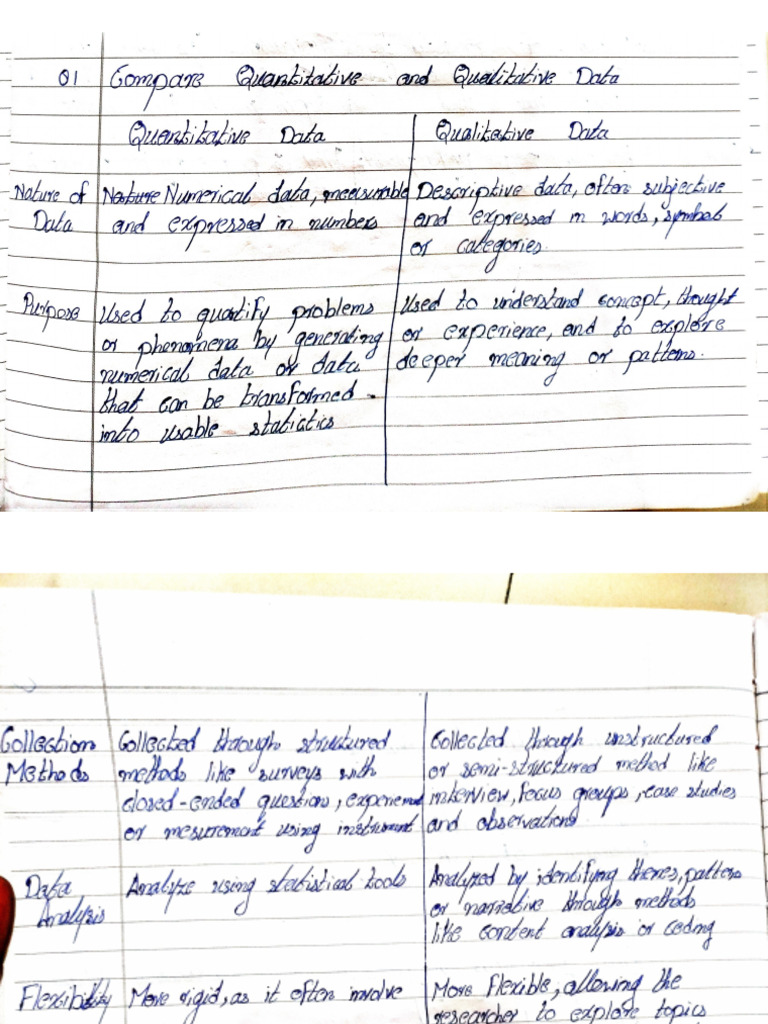 Q1 Compare Quantitative and Qualitative Data
Quantitative Data
Qualitative Data
Nature of
Data
Nature Numerical data, measurable
and expressed in numbers
Descriptive data, often subjective
and expressed in words, symbol
or categories.
Purpose
Used to quantify problems
or phenomena by generating
numerical data or data
that can be transformed
into usable statictics
Used to understand concept, thought
or experience, and to explore
deeper meaning or pattern.
Collection
Methods
Collected through structured
methods like surveys with
closed-ended question, experiement
or mesurement using instrument
Collected through unstructured
or semi-structured method like
interview, focus groups, case studies
and observation
Data
Analysis
Analyze using statistical tools
Analyzed by identifying themes, pattern
or narrative through methods
like content analysis or coding
Flexibility
More rigid, as it often involve
More Flexible, allowing the
researcher to explore topics